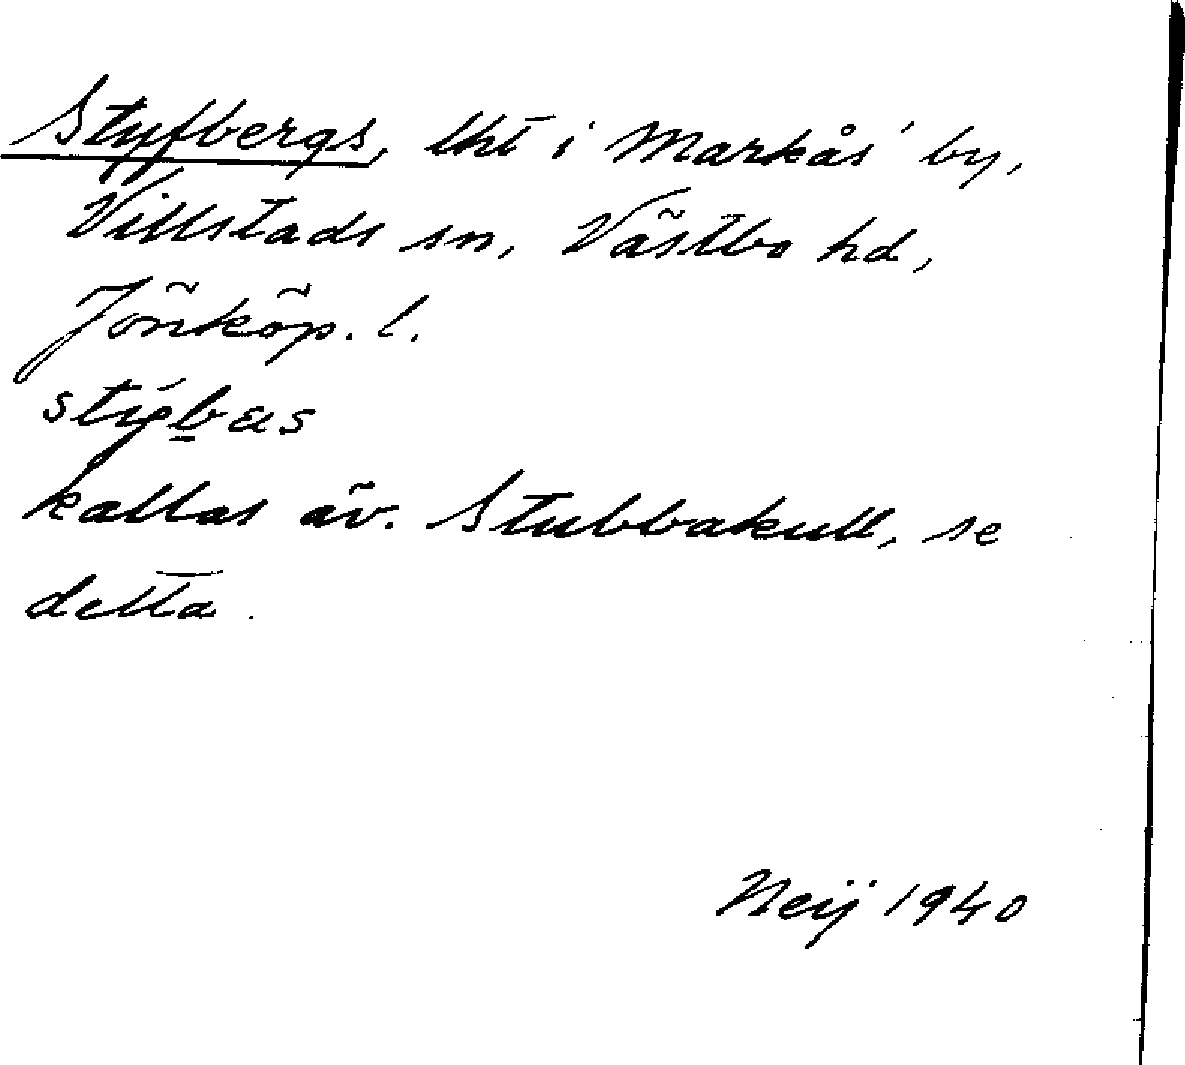 Styfbergs, lht i Markås' by,
Villstads sn, Västbo hd,
Jönköp. l.
kallas äv. Stubbakull, se
detta.
Neij 1940